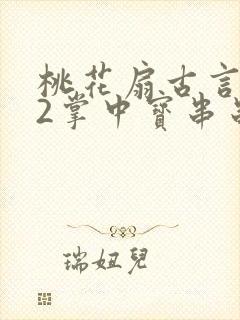 桃花扇古言
2掌中寳串
瑞妞兒